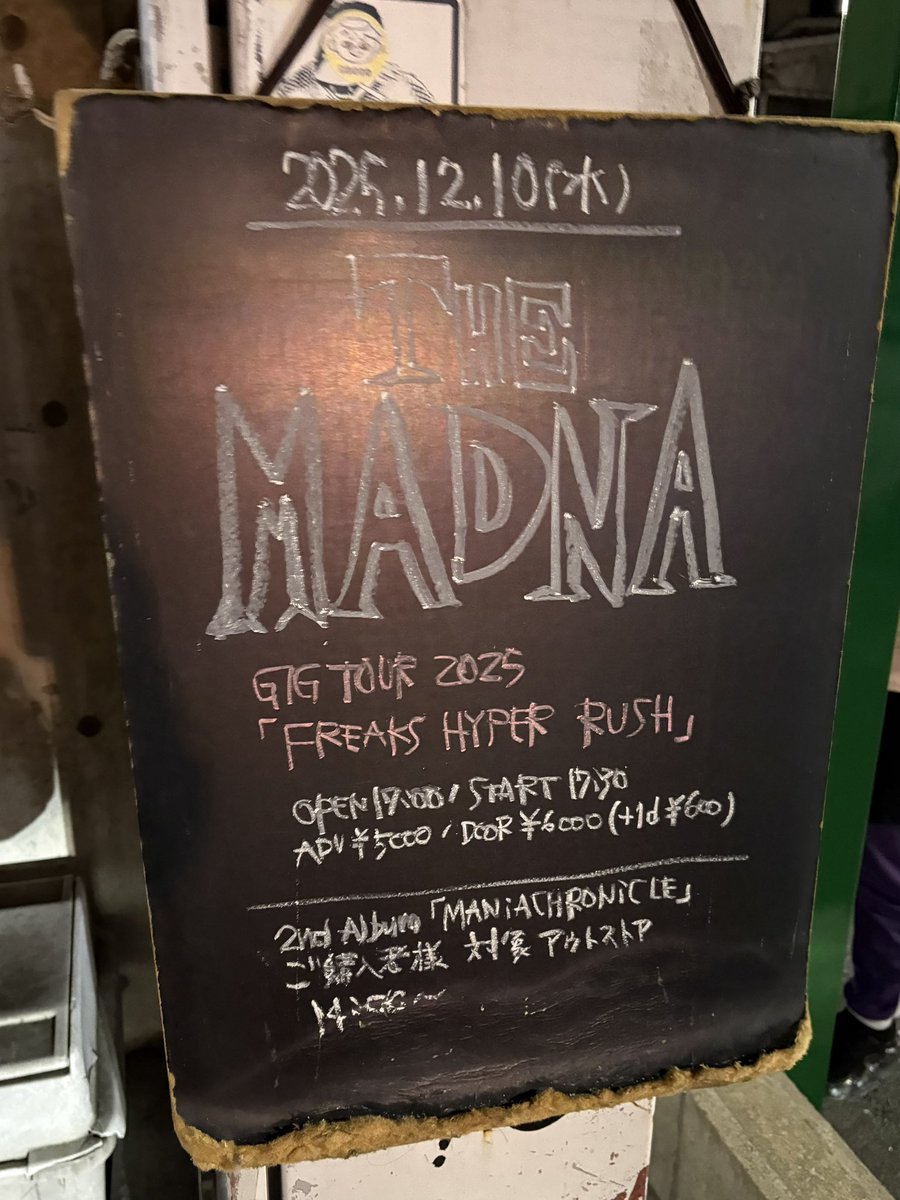 2025.12.10(水)
THE
MADNA
GIG TOUR 2025
「FREAKS HYPER RUSH」
OPEN 17:00 / START 17:30
ADV ¥5000 / DOOR ¥6000 (+1d ¥600)
2nd Album「MANiACHRONiCLE」
ご購入者様 対象 アウトストア